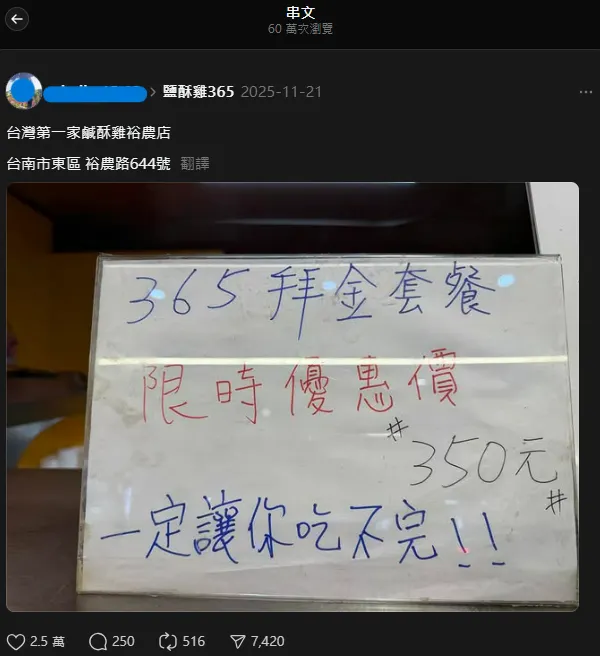 串文
60 萬次瀏覽
鹽酥雞365 2025-11-21
台灣第一家鹹酥雞裕農店
台南市東區 裕農路644號 翻譯
365拜金套餐
限時優惠價
#350元#
一定讓你吃不完!!
2.5 萬 250 516 7,420